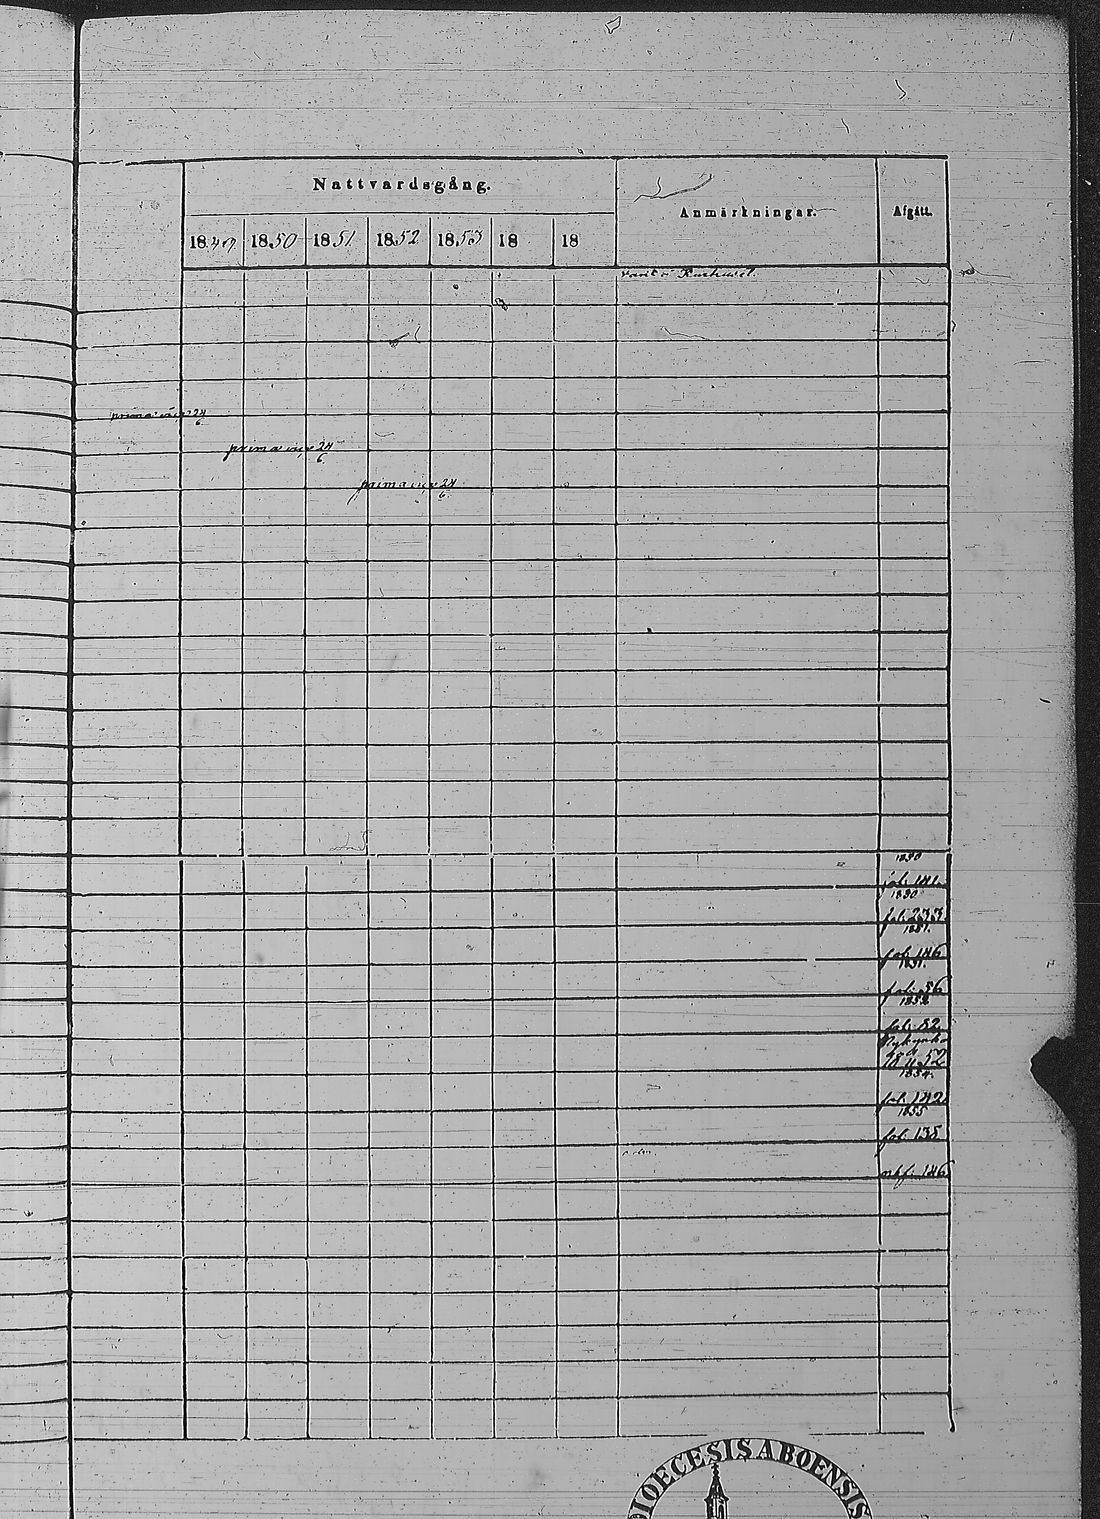 Nattvardsgång.
Anmärkningar.
Afgått.
1849. 1850 1851. 1852 1853 18 18
varit å Kurhuset.
prima vice 24/6
prima vice 24/6
prima vice 24/6
1850
fol. 181.
1850
fol. 233
1851.
fol. 146
1851.
fol. 56
1852
fol. 82
Nykyrko
1854.
fol. 142
1855
fol. 138
DIOECESIS ABOENSIS